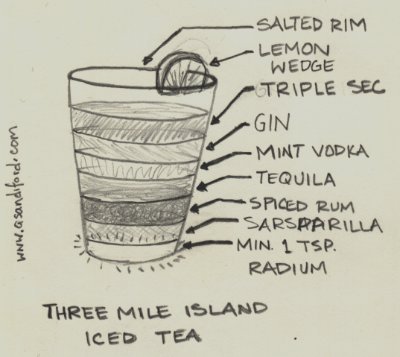 SALTED RIM
LEMON
WEDGE
TRIPLE SEC
GIN
MINT VODKA
TEQUILA
SPICED RUM
SARSPARILLA
MIN. 1 TSP.
RADIUM
www.qsandiford.com
THREE MILE ISLAND
ICED TEA